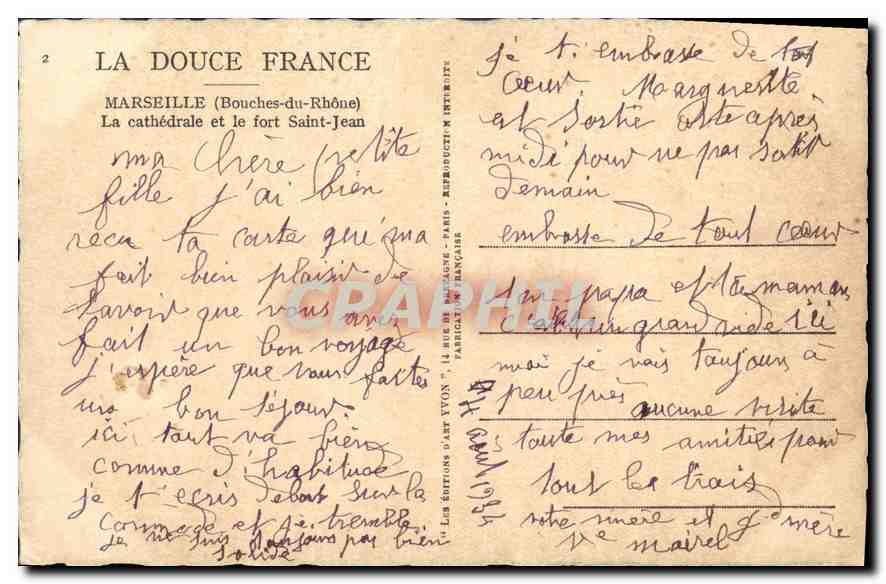 2
LA DOUCE FRANCE
MARSEILLE (Bouches-du-Rhône)
La cathédrale et le fort Saint-Jean
ma chère petite
fille j'ai bien
recu ta carte qui ma
fait bien plaisir de
savoir que vous avez
fait un bon voyage
j'espère que vous faites
un bon séjour.
ici tout va bien
comme d'habitude
je t'ecris debout sur la
commode et je tremble
je ne suis toujours pas bien
solide
"LES ÉDITIONS D'ART YVON", 14 RUE DE BRETAGNE - PARIS - REPRODUCTION INTERDITE
FABRICATION FRANÇAISE
CPAPHIL
je t'embrasse de tout
cœur. Marguerite
est sortie cete après
midi pour ne pas sortir
demain
embrasse de tout cœur
ton papa et ta maman
c'est un grand vide ici
moi je vais toujours à
peu près aucune visite
toute mes amitiés pour
tout les trois
votre mère et gd mère
Ve mairel
août 1954